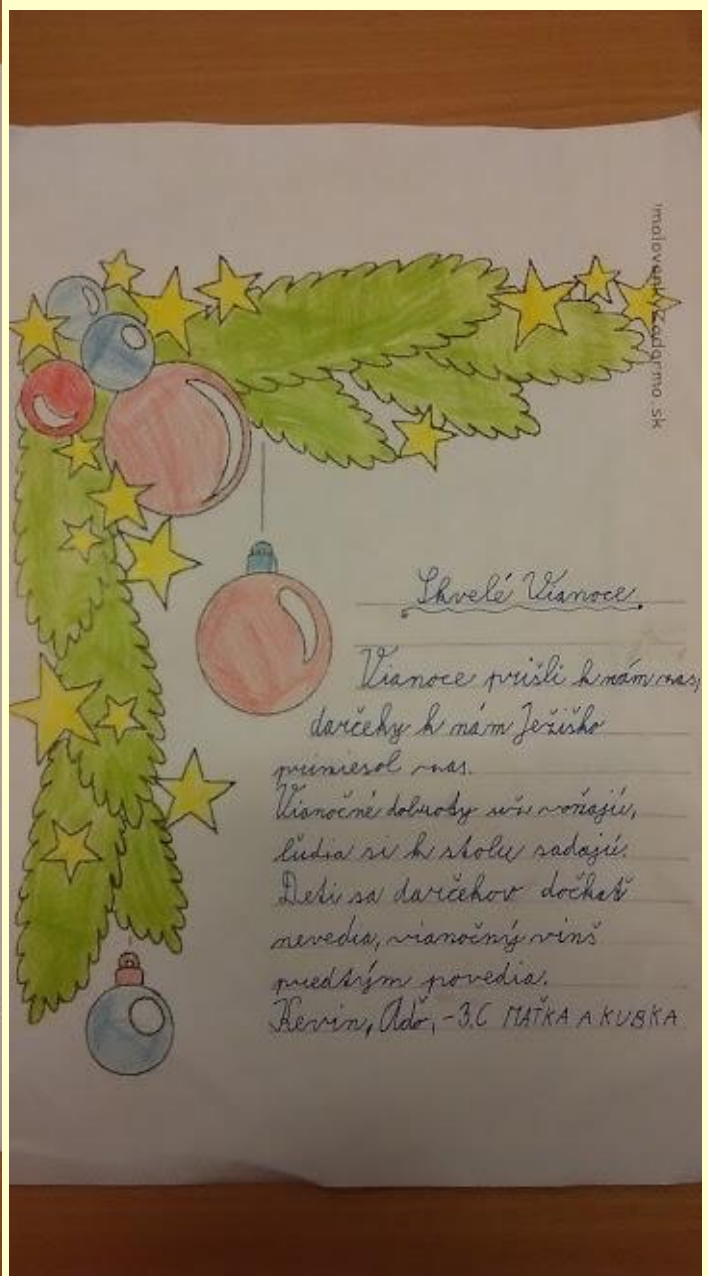 omaľovankyzadarmo.sk
Skvelé Vianoce
Vianoce prišli k nám zas,
darčeky k nám Ježiško
priniesol zas.
Vianočné dobroty už voňajú,
ľudia si k stolu sadajú.
Deti sa darčekov dočkať
nevedia, vianočný vinš
predtým povedia.
Kevin, Aďo, -3.C MAŤKA A KUBKA